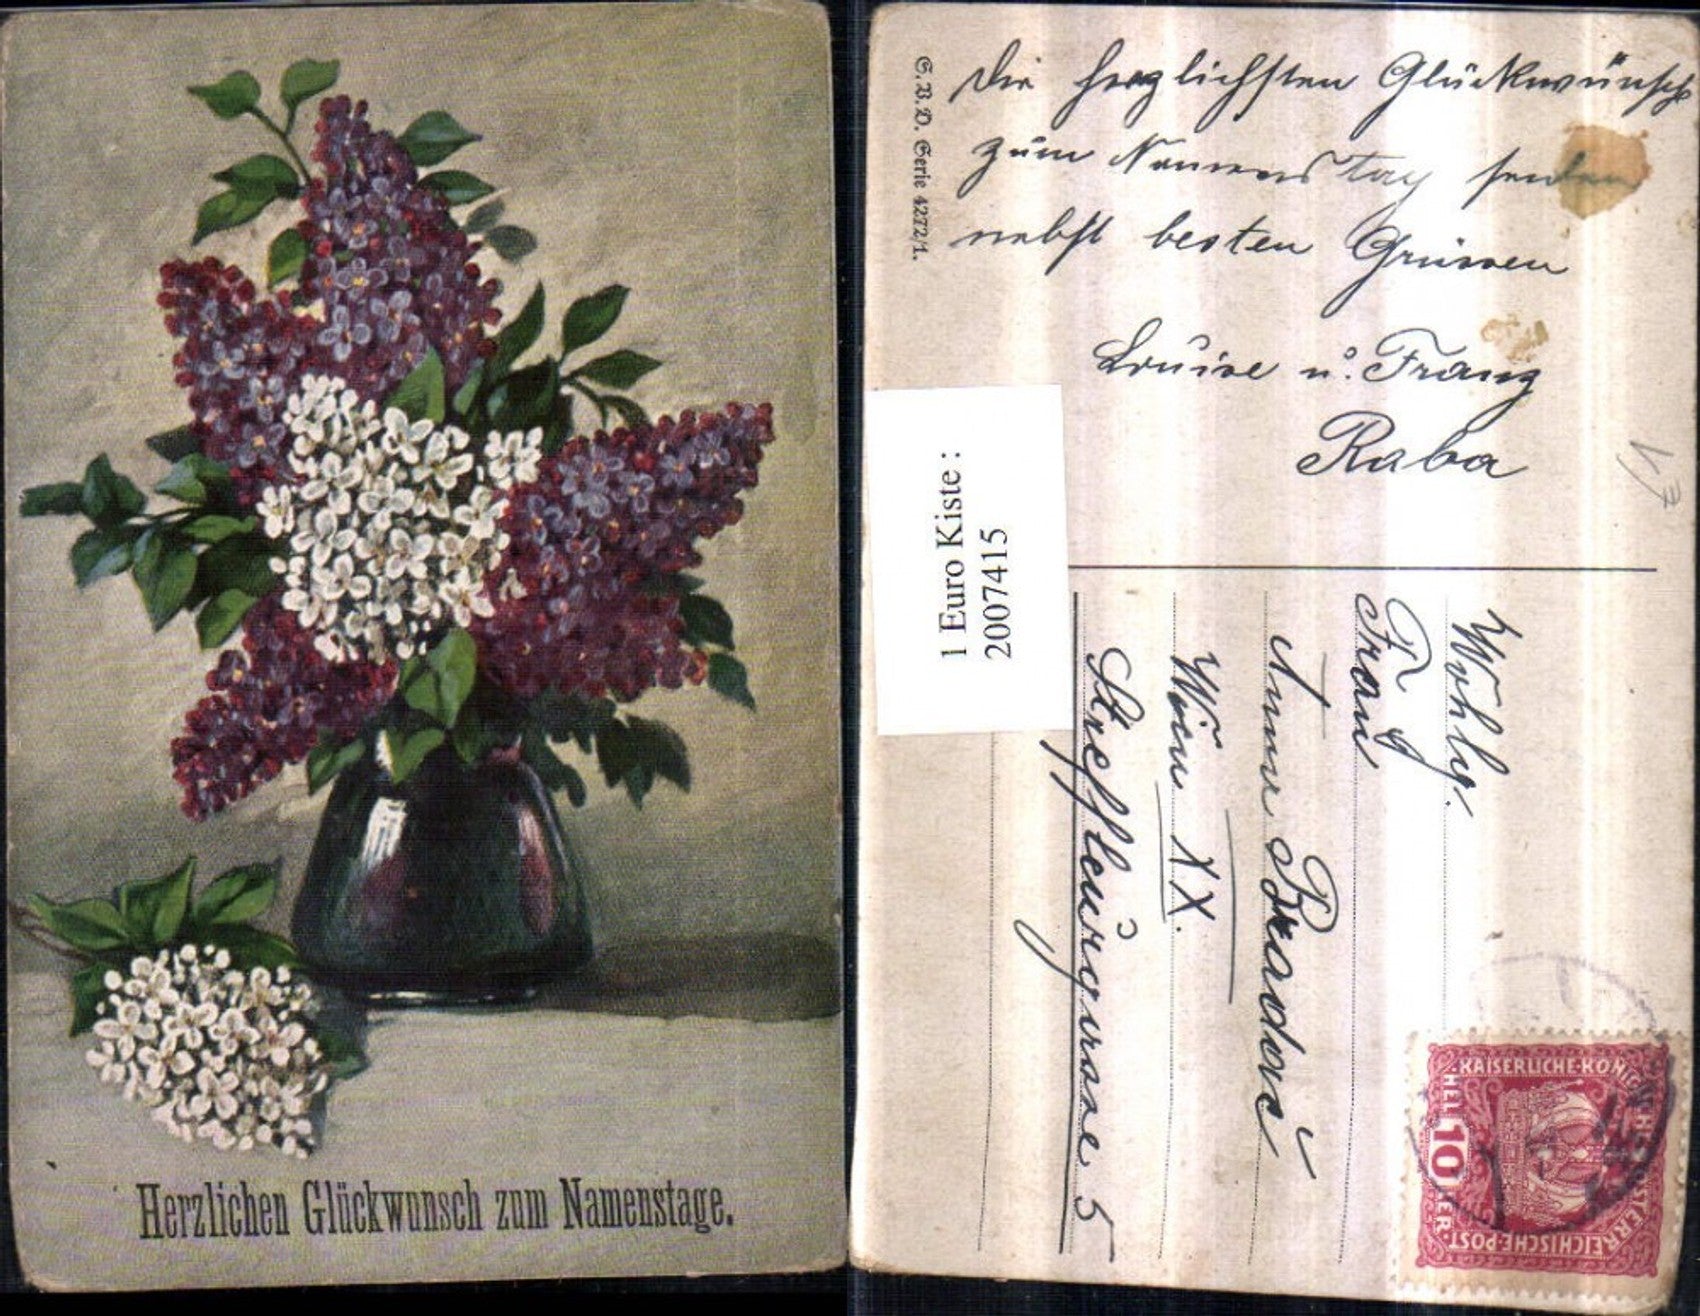 Herzlichen Glückwunsch zum Namenstage.
G. B. D. Serie 4272/1.
Die herzlichsten Glückwünsche
zum Namenstag senden
nebst besten Grüssen
Louise u. Franz
Raba
1 Euro Kiste :
2007415
Wohlg.
Frau
Anna
Wien XX.
5
KAISERLICHE KÖNIG
HELLER
10
REICHISCHE·POST